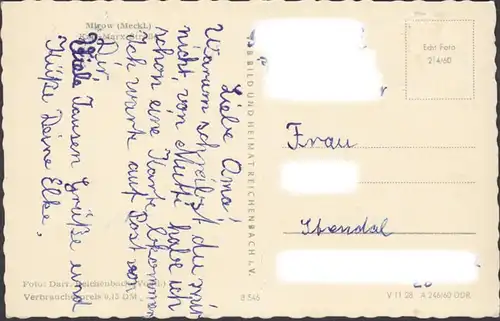 Mirow (Meckl.)
Liebe Oma!
Warum schreibst du mir
nicht, von Mutti habe ich
schon eine Karte bekommen
Ich warte auf Post von
Dir.
Viele Tausen Grüße und
Küße Deine Elke.
Foto: Darr, Reichenbach (Vogtl.)
Verbraucherpreis 0,12 DM
B 546
BILD UND HEIMAT REICHENBACH I. V.
Echt Foto
214/60
Frau
Stendal
V 11 28 A 246/60 DDR